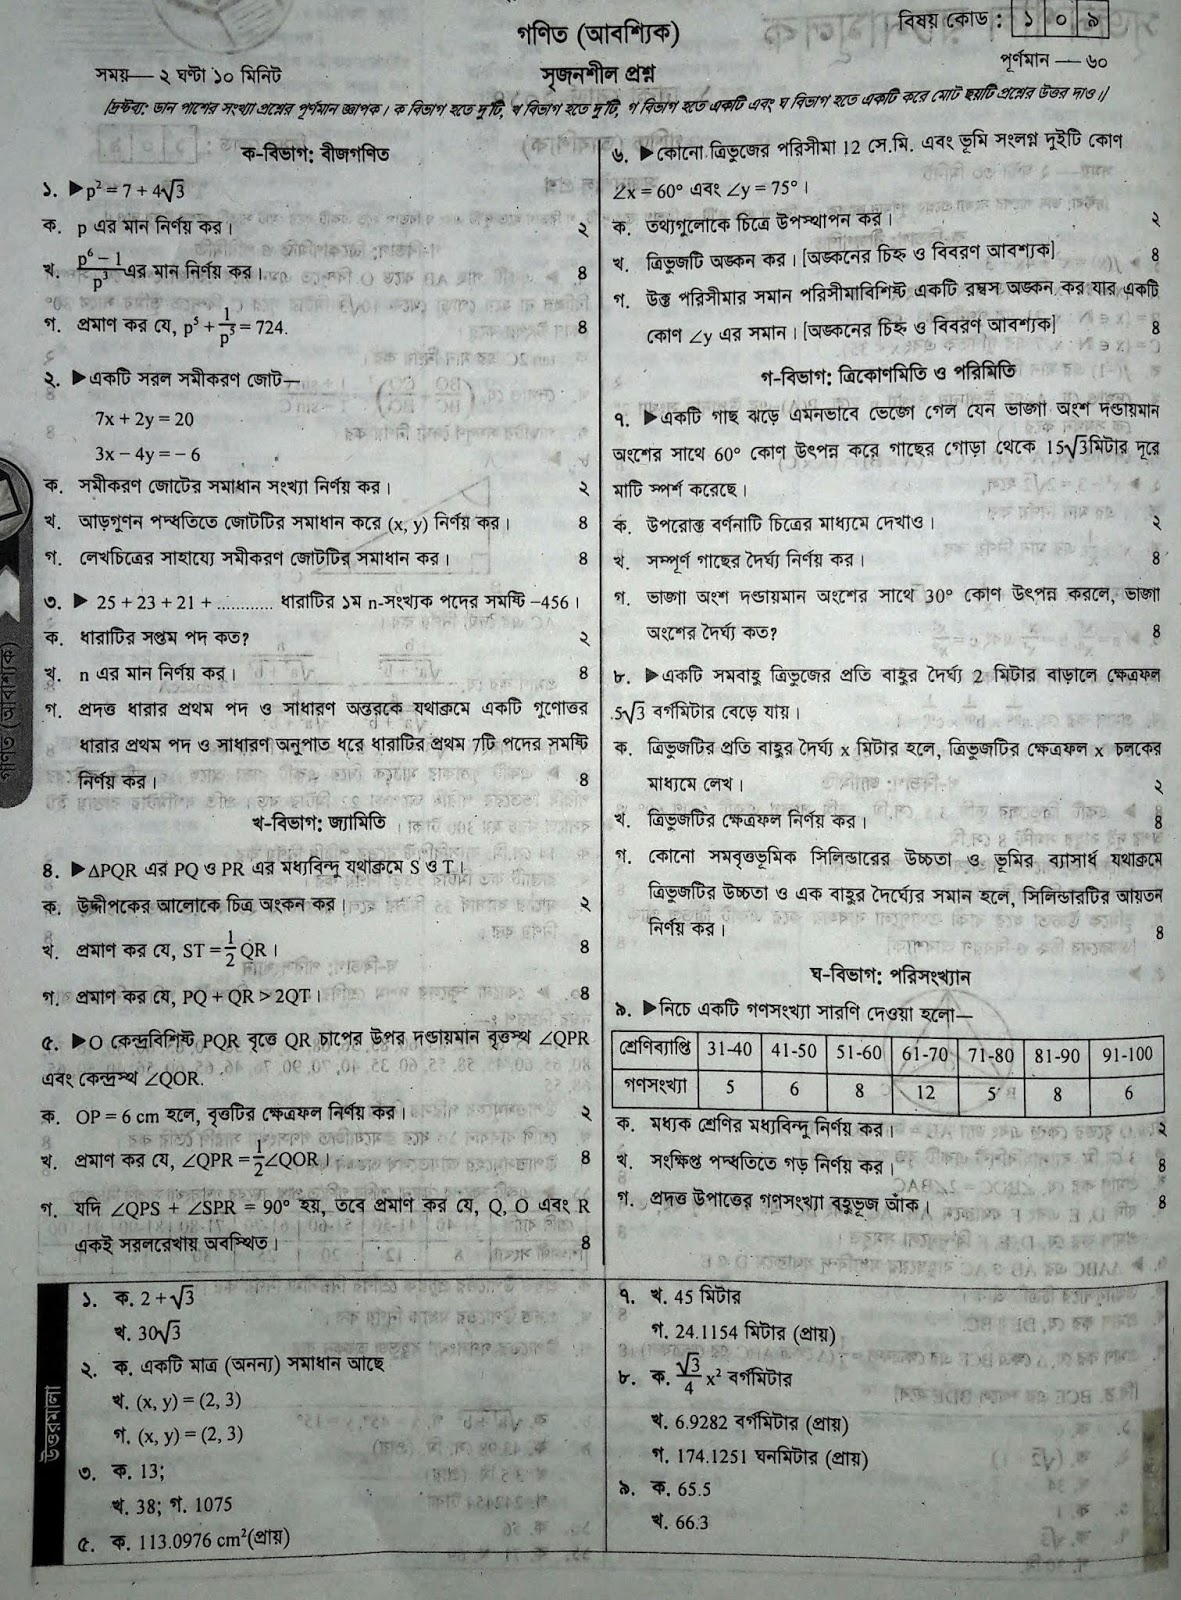 গণিত (আবশ্যিক)
বিষয় কোড : ১ ০ ৯
সময়— ২ ঘণ্টা ১০ মিনিট
সৃজনশীল প্রশ্ন
পূর্ণমান — ৬০
[দ্রষ্টব্য: ডান পাশের সংখ্যা প্রশ্নের পূর্ণমান জ্ঞাপক। ক বিভাগ হতে দু'টি, খ বিভাগ হতে দু'টি, গ বিভাগ হতে একটি এবং ঘ বিভাগ হতে একটি করে মোট ছয়টি প্রশ্নের উত্তর দাও।]
ক-বিভাগ: বীজগণিত
১. ▶ p² = 7 + 4√3
ক. p এর মান নির্ণয় কর। ২
খ. (p⁶ − 1)/p³ এর মান নির্ণয় কর। ৪
গ. প্রমাণ কর যে, p⁵ + 1/p⁵ = 724. ৪
২. ▶ একটি সরল সমীকরণ জোট—
7x + 2y = 20
3x − 4y = − 6
ক. সমীকরণ জোটের সমাধান সংখ্যা নির্ণয় কর। ২
খ. আড়গুণন পদ্ধতিতে জোটটির সমাধান করে (x, y) নির্ণয় কর। ৪
গ. লেখচিত্রের সাহায্যে সমীকরণ জোটটির সমাধান কর। ৪
৩. ▶ 25 + 23 + 21 + ............ ধারাটির ১ম n-সংখ্যক পদের সমষ্টি −456।
ক. ধারাটির সপ্তম পদ কত? ২
খ. n এর মান নির্ণয় কর। ৪
গ. প্রদত্ত ধারার প্রথম পদ ও সাধারণ অন্তরকে যথাক্রমে একটি গুণোত্তর
ধারার প্রথম পদ ও সাধারণ অনুপাত ধরে ধারাটির প্রথম 7টি পদের সমষ্টি
নির্ণয় কর। ৪
খ-বিভাগ: জ্যামিতি
৪. ▶ ΔPQR এর PQ ও PR এর মধ্যবিন্দু যথাক্রমে S ও T।
ক. উদ্দীপকের আলোকে চিত্র অংকন কর। ২
খ. প্রমাণ কর যে, ST = 1/2 QR। ৪
গ. প্রমাণ কর যে, PQ + QR > 2QT। ৪
৫. ▶ O কেন্দ্রবিশিষ্ট PQR বৃত্তে QR চাপের উপর দণ্ডায়মান বৃত্তস্থ ∠QPR
এবং কেন্দ্রস্থ ∠QOR.
ক. OP = 6 cm হলে, বৃত্তটির ক্ষেত্রফল নির্ণয় কর। ২
খ. প্রমাণ কর যে, ∠QPR = 1/2 ∠QOR। ৪
গ. যদি ∠QPS + ∠SPR = 90° হয়, তবে প্রমাণ কর যে, Q, O এবং R
একই সরলরেখায় অবস্থিত। ৪
৬. ▶ কোনো ত্রিভুজের পরিসীমা 12 সে.মি. এবং ভূমি সংলগ্ন দুইটি কোণ
∠x = 60° এবং ∠y = 75°।
ক. তথ্যগুলোকে চিত্রে উপস্থাপন কর। ২
খ. ত্রিভুজটি অঙ্কন কর। [অঙ্কনের চিহ্ন ও বিবরণ আবশ্যক] ৪
গ. উক্ত পরিসীমার সমান পরিসীমাবিশিষ্ট একটি রম্বস অঙ্কন কর যার একটি
কোণ ∠y এর সমান। [অঙ্কনের চিহ্ন ও বিবরণ আবশ্যক] ৪
গ-বিভাগ: ত্রিকোণমিতি ও পরিমিতি
৭. ▶ একটি গাছ ঝড়ে এমনভাবে ভেঙ্গে গেল যেন ভাঙ্গা অংশ দণ্ডায়মান
অংশের সাথে 60° কোণ উৎপন্ন করে গাছের গোড়া থেকে 15√3মিটার দূরে
মাটি স্পর্শ করেছে।
ক. উপরোক্ত বর্ণনাটি চিত্রের মাধ্যমে দেখাও। ২
খ. সম্পূর্ণ গাছের দৈর্ঘ্য নির্ণয় কর। ৪
গ. ভাঙ্গা অংশ দণ্ডায়মান অংশের সাথে 30° কোণ উৎপন্ন করলে, ভাঙ্গা
অংশের দৈর্ঘ্য কত? ৪
৮. ▶ একটি সমবাহু ত্রিভুজের প্রতি বাহুর দৈর্ঘ্য 2 মিটার বাড়ালে ক্ষেত্রফল
5√3 বর্গমিটার বেড়ে যায়।
ক. ত্রিভুজটির প্রতি বাহুর দৈর্ঘ্য x মিটার হলে, ত্রিভুজটির ক্ষেত্রফল x চলকের
মাধ্যমে লেখ। ২
খ. ত্রিভুজটির ক্ষেত্রফল নির্ণয় কর। ৪
গ. কোনো সমবৃত্তভূমিক সিলিন্ডারের উচ্চতা ও ভূমির ব্যাসার্ধ যথাক্রমে
ত্রিভুজটির উচ্চতা ও এক বাহুর দৈর্ঘ্যের সমান হলে, সিলিন্ডারটির আয়তন
নির্ণয় কর। ৪
ঘ-বিভাগ: পরিসংখ্যান
৯. ▶ নিচে একটি গণসংখ্যা সারণি দেওয়া হলো—
শ্রেণিব্যাপ্তি 31-40 41-50 51-60 61-70 71-80 81-90 91-100
গণসংখ্যা 5 6 8 12 5 8 6
ক. মধ্যক শ্রেণির মধ্যবিন্দু নির্ণয় কর। ২
খ. সংক্ষিপ্ত পদ্ধতিতে গড় নির্ণয় কর। ৪
গ. প্রদত্ত উপাত্তের গণসংখ্যা বহুভূজ আঁক। ৪
গণিত (আবশ্যিক)
উত্তরমালা
১. ক. 2 + √3
খ. 30√3
২. ক. একটি মাত্র (অনন্য) সমাধান আছে
খ. (x, y) = (2, 3)
গ. (x, y) = (2, 3)
৩. ক. 13;
খ. 38; গ. 1075
৫. ক. 113.0976 cm²(প্রায়)
৭. খ. 45 মিটার
গ. 24.1154 মিটার (প্রায়)
৮. ক. √3/4 x² বর্গমিটার
খ. 6.9282 বর্গমিটার (প্রায়)
গ. 174.1251 ঘনমিটার (প্রায়)
৯. ক. 65.5
খ. 66.3